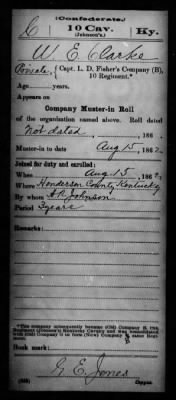 (Confederate.)
C 10 Cav. Ky.
(Johnson's.)
W. E. Clarke
Private, (Capt. L. D. Fisher's Company (B),
10 Regiment.*
Age years.
Appears on
Company Muster-in Roll
of the organization named above. Roll dated
Not dated, 186 .
Muster-in to date Aug 15, 1862.
Joined for duty and enrolled:
When Aug 15, 1862.
Where Henderson County, Kentucky
By whom A. R. Johnson
Period 3 years
Remarks:
*This company subsequently became (Old) Company B, 10th
Regiment (Johnson's) Kentucky Cavalry and was consolidated
with to form (New) Company of same Regi-
ment.
Book mark:
G. E. Jones
Copyist.